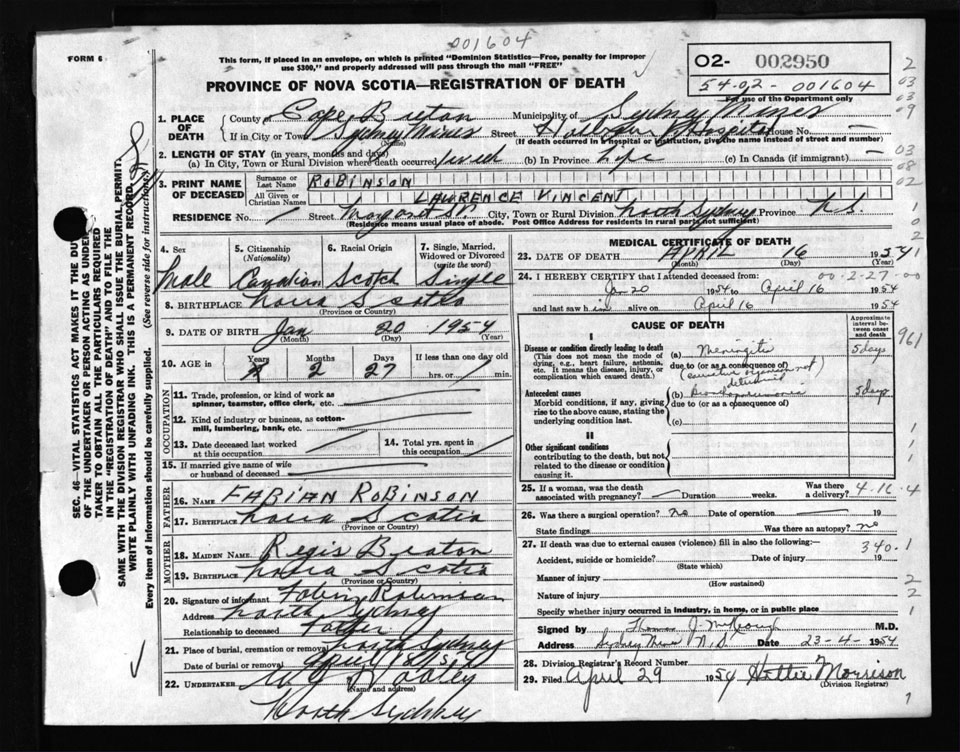 001604
FORM 6
This form, if placed in an envelope, on which is printed "Dominion Statistics—Free, penalty for improper
use $300," and properly addressed will pass through the mail "FREE"
02- 002950
54-02-001604
For use of the Department only
PROVINCE OF NOVA SCOTIA—REGISTRATION OF DEATH
1. PLACE OF DEATH
County of Cape Breton Municipality of Sydney Mines
If in City or Town Sydney Mines Street Hospital House No. —
(Name) (If death occurred in a hospital or institution, give the name instead of street and number)
2. LENGTH OF STAY (in years, months and days)
(a) In City, Town or Rural Division where death occurred (b) In Province Life (c) In Canada (if immigrant) —
3. PRINT NAME OF DECEASED
Surname or Last Name ROBINSON
All Given or Christian Names LAWRENCE VINCENT
RESIDENCE No. Street City, Town or Rural Division North Sydney Province N.S.
(Residence means usual place of abode. Post Office Address for residents in rural parts not sufficient)
4. Sex Male
5. Citizenship (Nationality) Canadian
6. Racial Origin Scotch
7. Single, Married, Widowed or Divorced (write the word) Single
8. BIRTHPLACE Nova Scotia
(Province or Country)
9. DATE OF BIRTH Jan 20 1954
(Month) (Day) (Year)
10. AGE in Years Months 2 Days 27 If less than one day old hrs. or min.
OCCUPATION
11. Trade, profession or kind of work as spinner, teamster, office clerk, etc.
12. Kind of industry or business, as cotton-mill, lumbering, bank, etc.
13. Date deceased last worked at this occupation
14. Total yrs. spent in this occupation
15. If married give name of wife or husband of deceased
FATHER
16. NAME FABIAN ROBINSON
17. BIRTHPLACE Nova Scotia
(Province or Country)
MOTHER
18. MAIDEN NAME Regis Beaton
19. BIRTHPLACE Nova Scotia
(Province or Country)
20. Signature of informant Fabian Robinson
Address North Sydney
Relationship to deceased Father
21. Place of burial, cremation or removal North Sydney
Date of burial or removal April 18 1954
22. UNDERTAKER W J Dooley
(Name and address)
North Sydney
MEDICAL CERTIFICATE OF DEATH
23. DATE OF DEATH APRIL 16 1954
(Month) (Day) (Year)
24. I HEREBY CERTIFY that I attended deceased from: 00-2-27-00
Jan 20 1954 to April 16 1954
and last saw him alive on April 16 1954
CAUSE OF DEATH
Approximate interval between onset and death
I
Disease or condition directly leading to death
(This does not mean the mode of dying, e.g., heart failure, asthenia, etc. It means the disease, injury, or complication which caused death.)
(a) Meningitis 5 days
due to (or as a consequence of)
(causative organism not determined)
Antecedent causes
Morbid conditions, if any, giving rise to the above cause, stating the underlying condition last.
(b) Bronchopneumonia 5 days
due to (or as a consequence of)
(c)
II
Other significant conditions
contributing to the death, but not related to the disease or condition causing it.
25. If a woman, was the death associated with pregnancy? — Duration weeks. Was there a delivery?
26. Was there a surgical operation? No Date of operation — 19
State findings Was there an autopsy? no
27. If death was due to external causes (violence) fill in also the following:— 340.1
Accident, suicide or homicide? Date of injury 19
(State which)
Manner of injury
(How sustained)
Nature of injury
Specify whether injury occurred in industry, in home, or in public place
Signed by Thomas J. M.D.
Address Sydney Mines N.S. Date 23-4-1954
28. Division Registrar's Record Number
29. Filed April 29 1954 Hattie Morrison
(Division Registrar)
SEC. 46—VITAL STATISTICS ACT MAKES IT THE DUTY
OF THE UNDERTAKER OR PERSON ACTING AS UNDERTAKER TO OBTAIN ALL THE PARTICULARS REQUIRED
IN THE "REGISTRATION OF DEATH" AND TO FILE THE
SAME WITH THE DIVISION REGISTRAR WHO SHALL ISSUE THE BURIAL PERMIT.
WRITE PLAINLY WITH UNFADING INK. THIS IS A PERMANENT RECORD.
Every item of information should be carefully supplied. (See reverse side for instructions.)
2
03
03
09
03
08
02
1
0
2
1
961
1
1
1
4
1
2
1
9